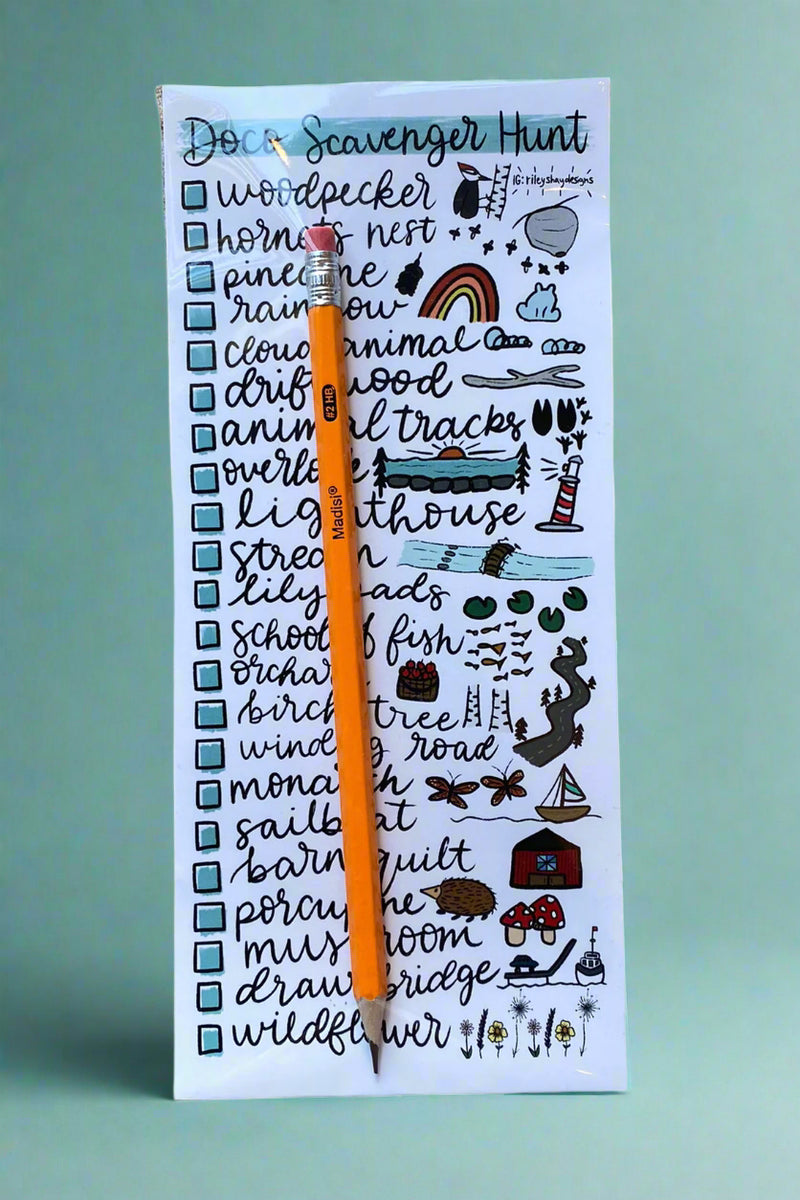 Doco Scavenger Hunt
IG: rileyshaydesigns
woodpecker
hornets nest
pinecone
rainbow
cloud animal
driftwood
animal tracks
overlook
lighthouse
stream
lily pads
school of fish
orchard
birch tree
winding road
monarch
sailboat
barn quilt
porcupine
mushroom
drawbridge
wildflower
#2 HB
Madisi®